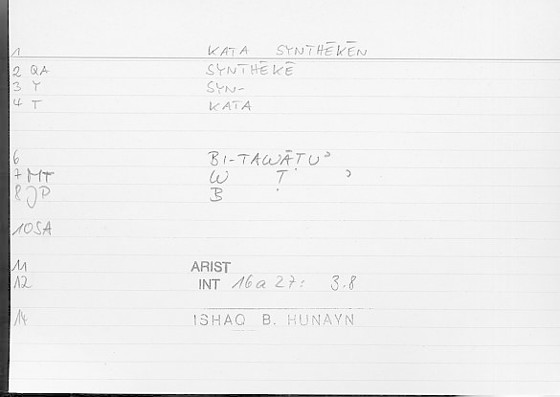 1 KATA SYNTHĒKĒN
2 QA SYNTHĒKĒ
3 Y SYN-
4 T KATA
6 BI-TAWĀTUʾ
7 MT W T ʾ
8 JP B
10 SA
11 ARIST
12 INT 16a27: 3.8
14 ISHAQ B. HUNAYN